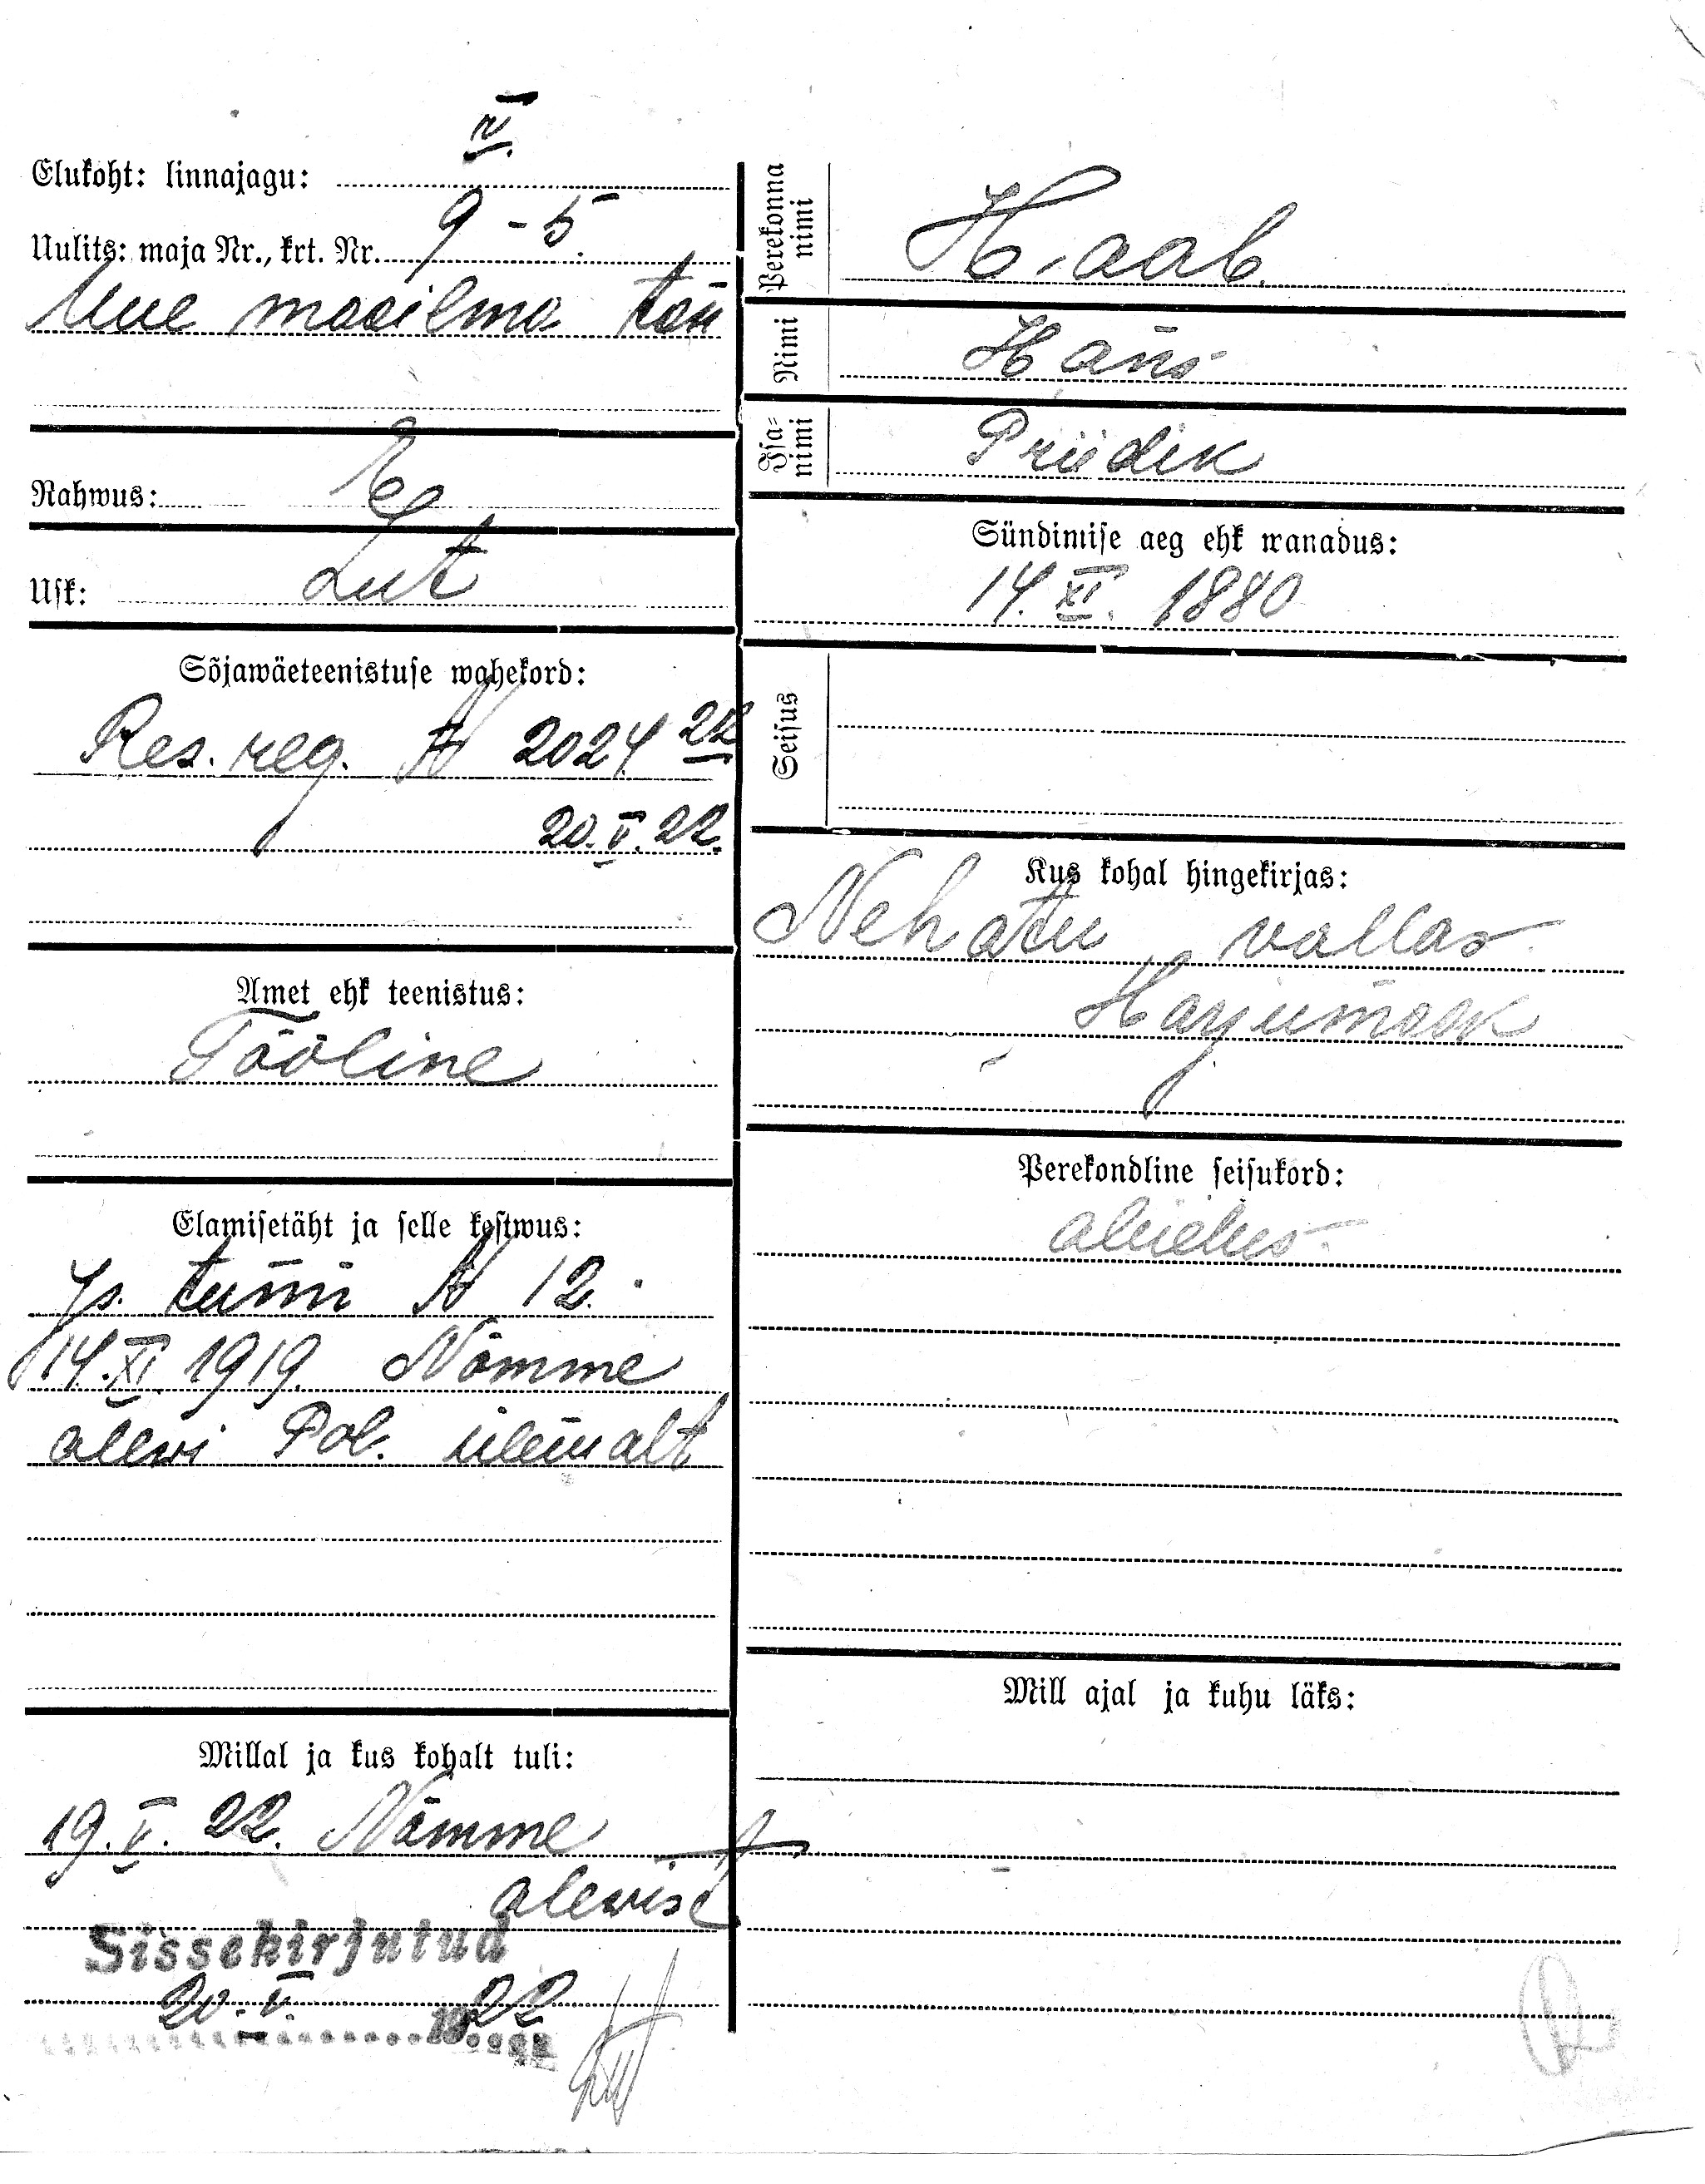 IV.
Elukoht: linnajagu:
Uulits: maja Nr., krt. Nr. 9-5.
Uue maailma tän
Rahwus: Ee
Usk: Lut
Sõjawäeteenistuse wahekord:
Res. reg. № 2024 22
20.V.22.
Amet ehk teenistus:
Tööline
Elamisetäht ja selle kestwus:
Is. tunn № 12.
14.XI 1919. Nõmme
alewi Pol. ülemalt
Millal ja kus kohalt tuli:
19.V.22. Nõmme
alewist
Sissekirjutud
20.V. 1922
Perekonna nimi
Haab.
Nimi
Hans
Isa-nimi
Priidik
Sündimise aeg ehk wanadus:
14.XI. 1880
Seisus
Kus kohal hingekirjas:
Nehatu vallas
Harjumaak
Perekondline seisukord:
abielus.
Mill ajal ja kuhu läks: